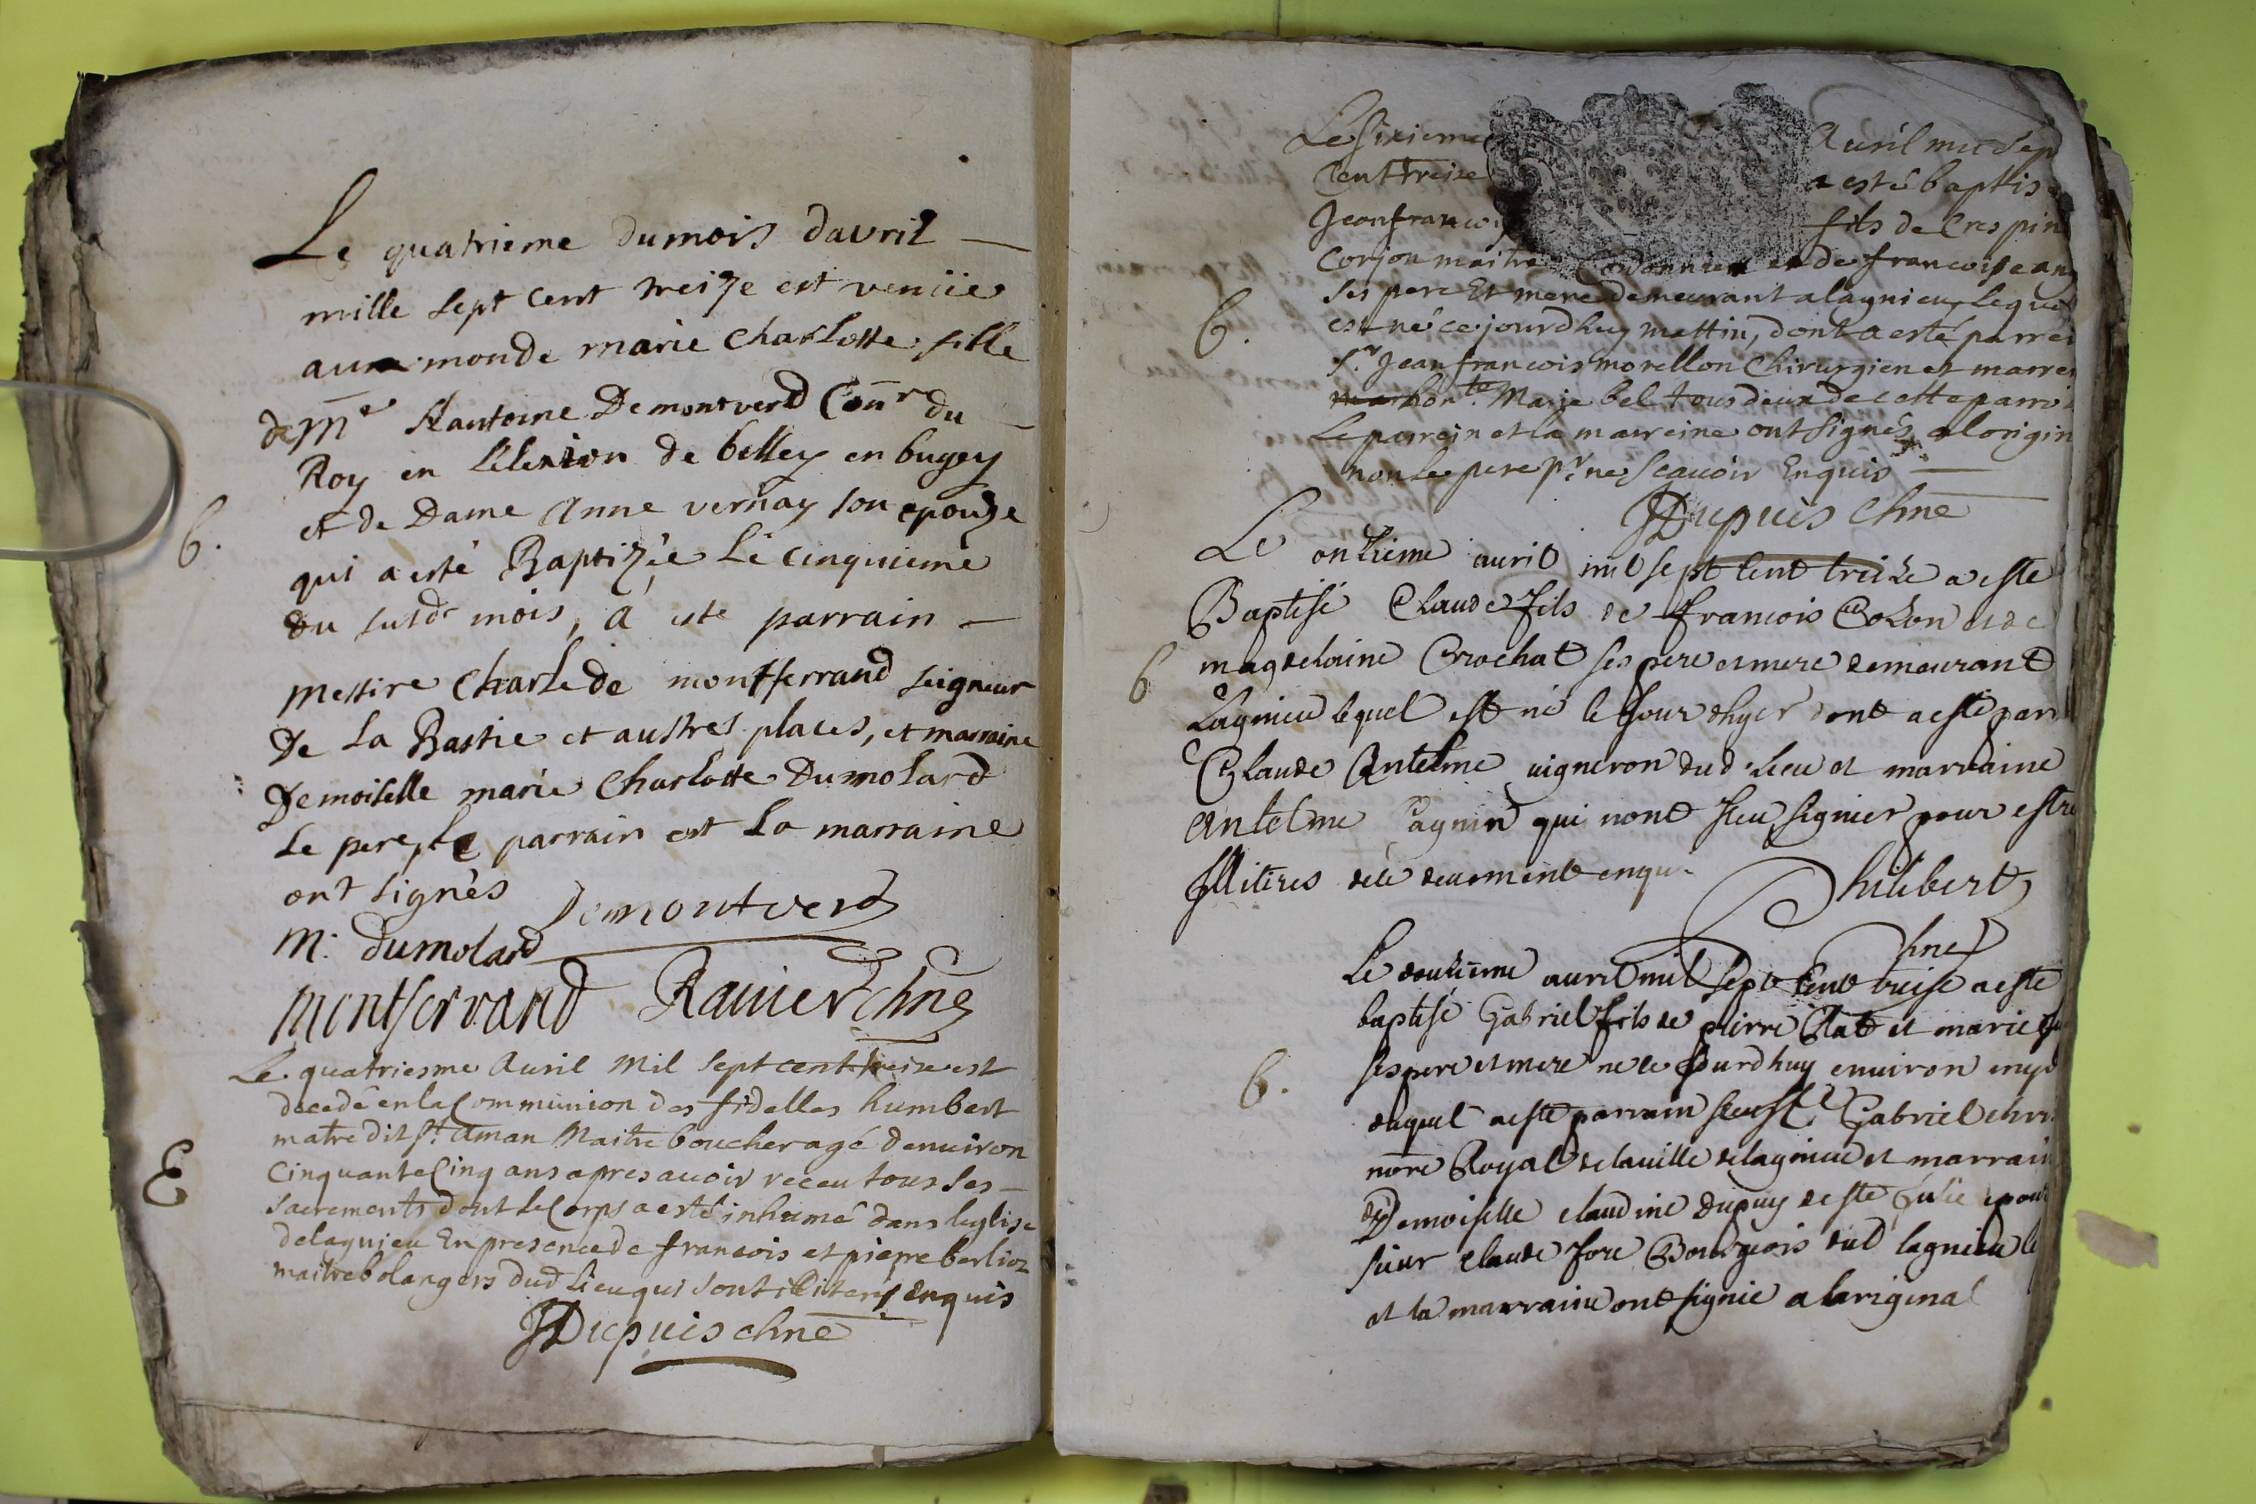 Le quatrieme du mois davril
mille sept cent treize est venüe
au monde marie charlotte fille
de Me Hantoine Demontverd Conr du
Roy en lelexion de belley en bugey
et de Dame Anne vernay son epouze
qui a esté Baptizée le cinquieme
du susdt mois, a esté parrain
messire charle de montferrand seigneur
De La Bastie et austres places, et marraine
Demoiselle marie Charlotte Dumolard
le pere, le parrain et la marraine
ont signés Demontverd
m: dumolard
montferrand Ravier chne
6.
Le quatriesme Auril Mil sept cent treize est
decedé en la Communion des fidelles humbert
matre dit st. aman Maitre boucher agé denuiron
cinquante Cinq ans apres auoir receu tous ses
sacrements dont le Corps a esté inhumé dans leglise
delagnieu En presence de francois et pierre berlioz
maitre bolangers dud Lieu qui sont illiterés enquis
JDupuis chne
E
Le sixieme Auril mil sep
Cent treize a esté baptis
Jean francois fils de Crespin
Corjon maitre Cordonnier et de francoise
ses pere Et mere demeurant a lagnieu, lequel
est né ce jourdhuy mattin, dont a esté parrei
Sr. Jean francois morellon Chirurgien et marrei
honte. Marie bel tous deux de cette parroi
Le parrein et la marreine ont signés a lorigin
non le pere pr. ne scauoir Enquis
JDupuis chne
6.
Le onzieme auril mil sept cent treize a esté
Baptisé Claude fils de francois Cozon et de
magdelaine Brochat ses pere et mere demeurant
Lagnieu lequel est né le jour dhyer dont a esté parr
Claude Antelme vigneron dud. lieu et marraine
antelme pagnin qui nont sceu signier pour estre
Illitires de ce deuement enqu.
Philibert
chne
6
Le douzieme auril mil sept cent treise a esté
baptisé Gabriel fils de pierre Clat et marie
ses pere et mere né ce jourdhuy enuiron
duquel a esté parrain Gabriel
nore Royal de la uille de lagnieu et marrain
Demoiselle claudine dupuy de ste Julie epous
sieur claude fore Bourgeois dud lagnieu le
et la marraine ont signié a loriginal
6.